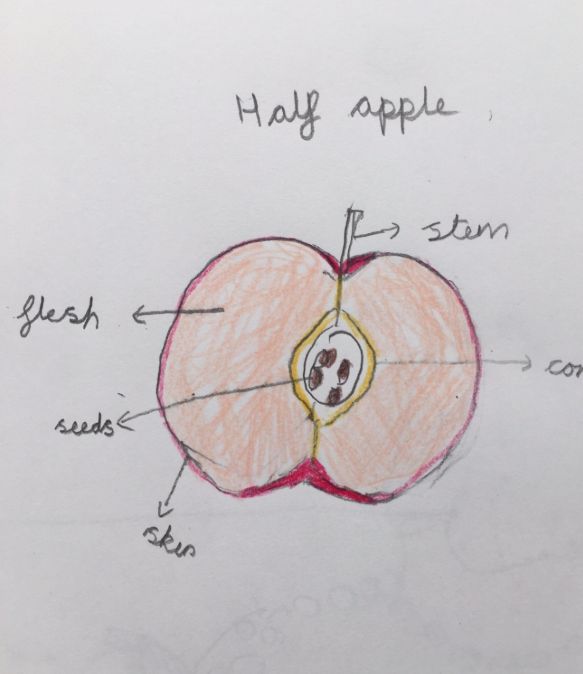 Half apple
stem
flesh
seeds
skin